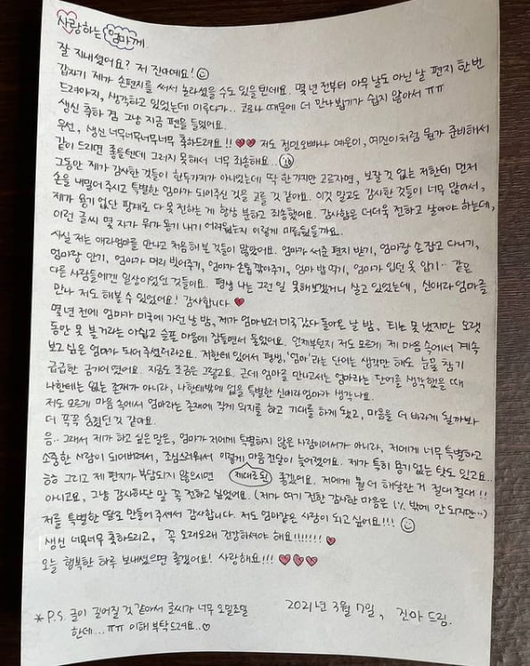 사랑하는 엄마께
잘 지내셨어요? 저 진아예요!
갑자기 제가 손편지를 써서 놀라셨을 수도 있을텐데요. 몇 년 전부터 아무 날도 아닌 날 편지 한번
드려야지, 생각하고 있었는데 미루다가.. 코로나 때문에 더 만나뵙기가 쉽지 않아서 ㅠㅠ
생신 축하 겸 그냥 지금 펜을 들었어요.
우선, 생신 너무너무너무너무 축하드려요!! 저도 정민오빠나 예은이, 여진이처럼 뭔가 준비해서
같이 드리면 좋을텐데 그러지 못해서 너무 죄송해요..
그동안 제가 감사한 것들이 한두가지가 아니었는데 딱 한가지만 고르자면, 보잘 것 없는 저한테 먼저
손을 내밀어 주시고 특별한 엄마가 되어주신 것을 고를 것 같아요. 이것 말고도 감사한 것들이 너무 많아서,
제가 용기 없단 핑계로 다 못 전하는 게 항상 분하고 죄송했어요. 감사함은 더더욱 전하고 살아야 하는데,
이런 글씨 몇 자가 뭐가 용기 내기 어려웠는지 이렇게 미뤘을까요.
사실 저는 이라엄마를 만나고 처음 해본 것들이 많았어요. 엄마가 써준 편지 받기, 엄마랑 손 잡고 다니기,
엄마랑 안기, 엄마가 머리 빗어주기, 엄마가 손톱 깎아주기, 엄마 밥 먹기, 엄마가 입던 옷 입기.. 같은
다른 사람들에겐 일상이었던 것들이요. 평생 나는 그런 일 못해보겠거니 살고 있었는데, 신이라엄마를
만나 저도 해볼 수 있었어요! 감사합니다
몇 년 전에 엄마가 미국에 가신 날 밤, 제가 엄마보러 미국 갔다 돌아온 날 밤, 티는 못 냈지만 오랫
동안 못 볼 거라는 아쉽고 슬픈 마음에 잠들면서 울었어요. 언제부턴지 저도 모르게 제 마음 속에서 계속
보고 싶은 엄마가 되어 주셨더라고요. 저한테 있어서 평생, '엄마'라는 단어는 생각만 해도 눈물 참기
급급한 금기어였어요. 지금도 조금은 그렇고요. 근데 엄마를 만나고서는 엄마라는 단어를 생각했을 때
나한테는 없는 존재가 아니라, 나한테밖에 없을 특별한 신이라엄마가 생각나요.
저도 모르게 마음 속에서 엄마라는 존재에 작게 의지를 하고 기대를 하게 됐고, 마음을 더 바라게 될까봐
더 꼭꼭 숨겼던 것 같아요.
음.. 그래서 제가 하고 싶은 말은, 엄마가 저에게 특별하지 않은 사람이어서가 아니라, 저에게 너무 특별하고
소중한 사람이 되어버려서, 조심스러워서 이렇게 마음 전달이 늦어졌어요. 제가 특히 용기 없는 탓도 있고요..
그리고 제 편지가 부담되지 않으시면 좋겠어요. 저에게 뭘 더 해달란 거 절대 절대!!
아니고요, 그냥 감사하단 말 꼭 전하고 싶었어요. (제가 여기 전한 감사한 마음은 1% 밖에 안 되지만..)
저를 특별한 딸로 만들어 주셔서 감사합니다. 저도 엄마같은 사람이 되고 싶어요!!!
생신 너무너무 축하드리고, 꼭 오래오래 건강하셔야 해요!!!!!!!
오늘 행복한 하루 보내셨으면 좋겠어요! 사랑해요!!!
2021년 3월 17일, 진아 드림.
*P.S. 글이 길어질 것 같아서 글씨가 너무 오밀조밀
한데... ㅠㅠ 이해 부탁드려요..